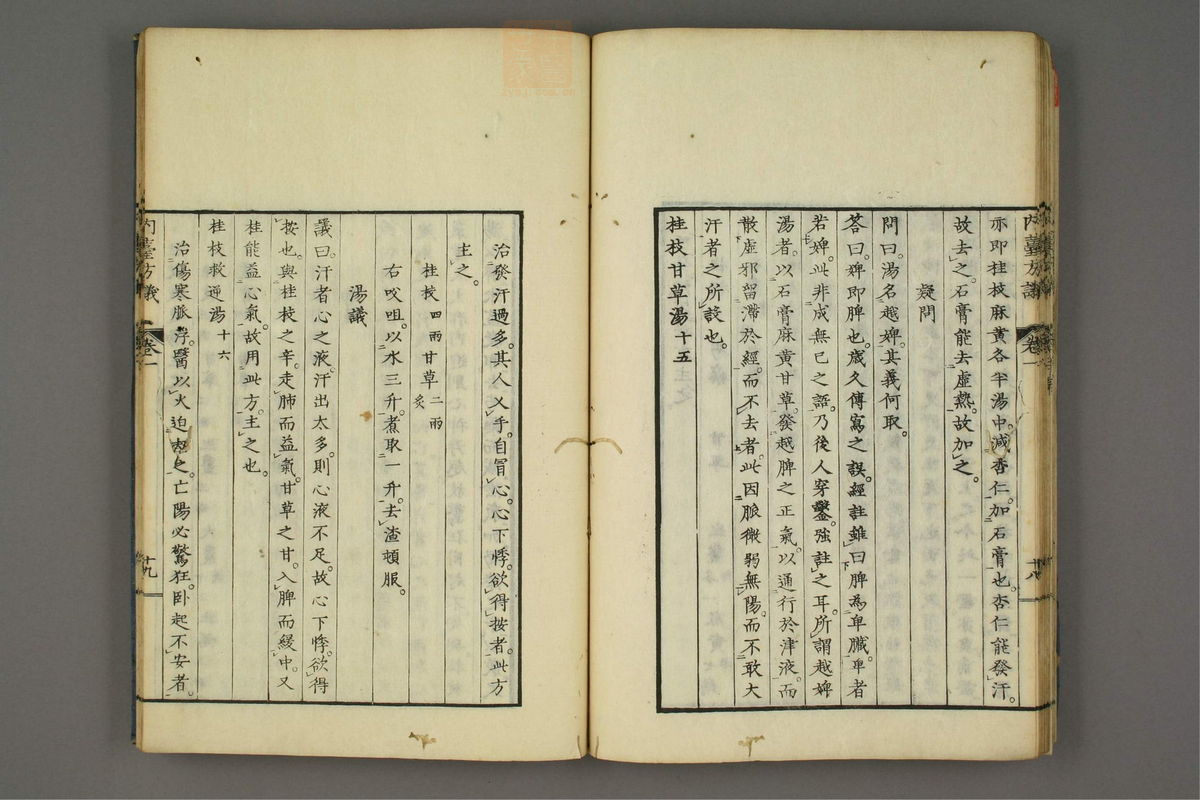 亦即桂枝麻黄各半湯中減杏仁加石膏也杏仁能發汗
故去之石膏能去虚熱故加之
疑問
問曰湯名越婢其義何取
答曰婢即脾也歳久傳寫之誤經註雖曰脾為卑臓卑者
若婢此非成無已之語乃後人穿鑿強註之耳所謂越婢
湯者以石膏麻黄甘草發越脾之正氣以通行於津液而
散虚邪留滯於經而不去者此因脈微弱無陽而不敢大
汗者之所設也
桂枝甘草湯十五
内臺方議 卷一 十八
治發汗過多其人乂手自冐心心下悸欲得按者此方
主之
桂枝四兩甘草二兩炙
右㕮咀以水三升煮取一升去渣頓服
湯議
議曰汗者心之液汗出太多則心液不足故心下悸欲得
按也與桂枝之辛走肺而益氣甘草之甘入脾而緩中又
桂能益心氣故用此方主之也
桂枝救逆湯十六
治傷寒脈浮醫以火迫刼之亡陽必驚狂卧起不安者
内臺方議 卷一 十九